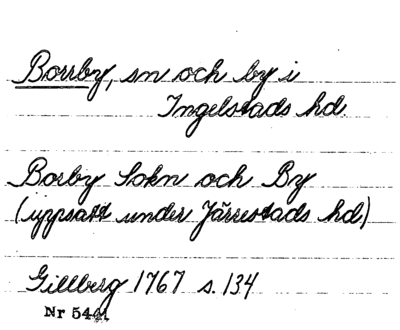 Borrby, sn och by i
Ingelstads hd.
Borby Sokn och By
(uppsatt under Järrestads hd)
Gillberg 1767 s. 134
Nr 5441